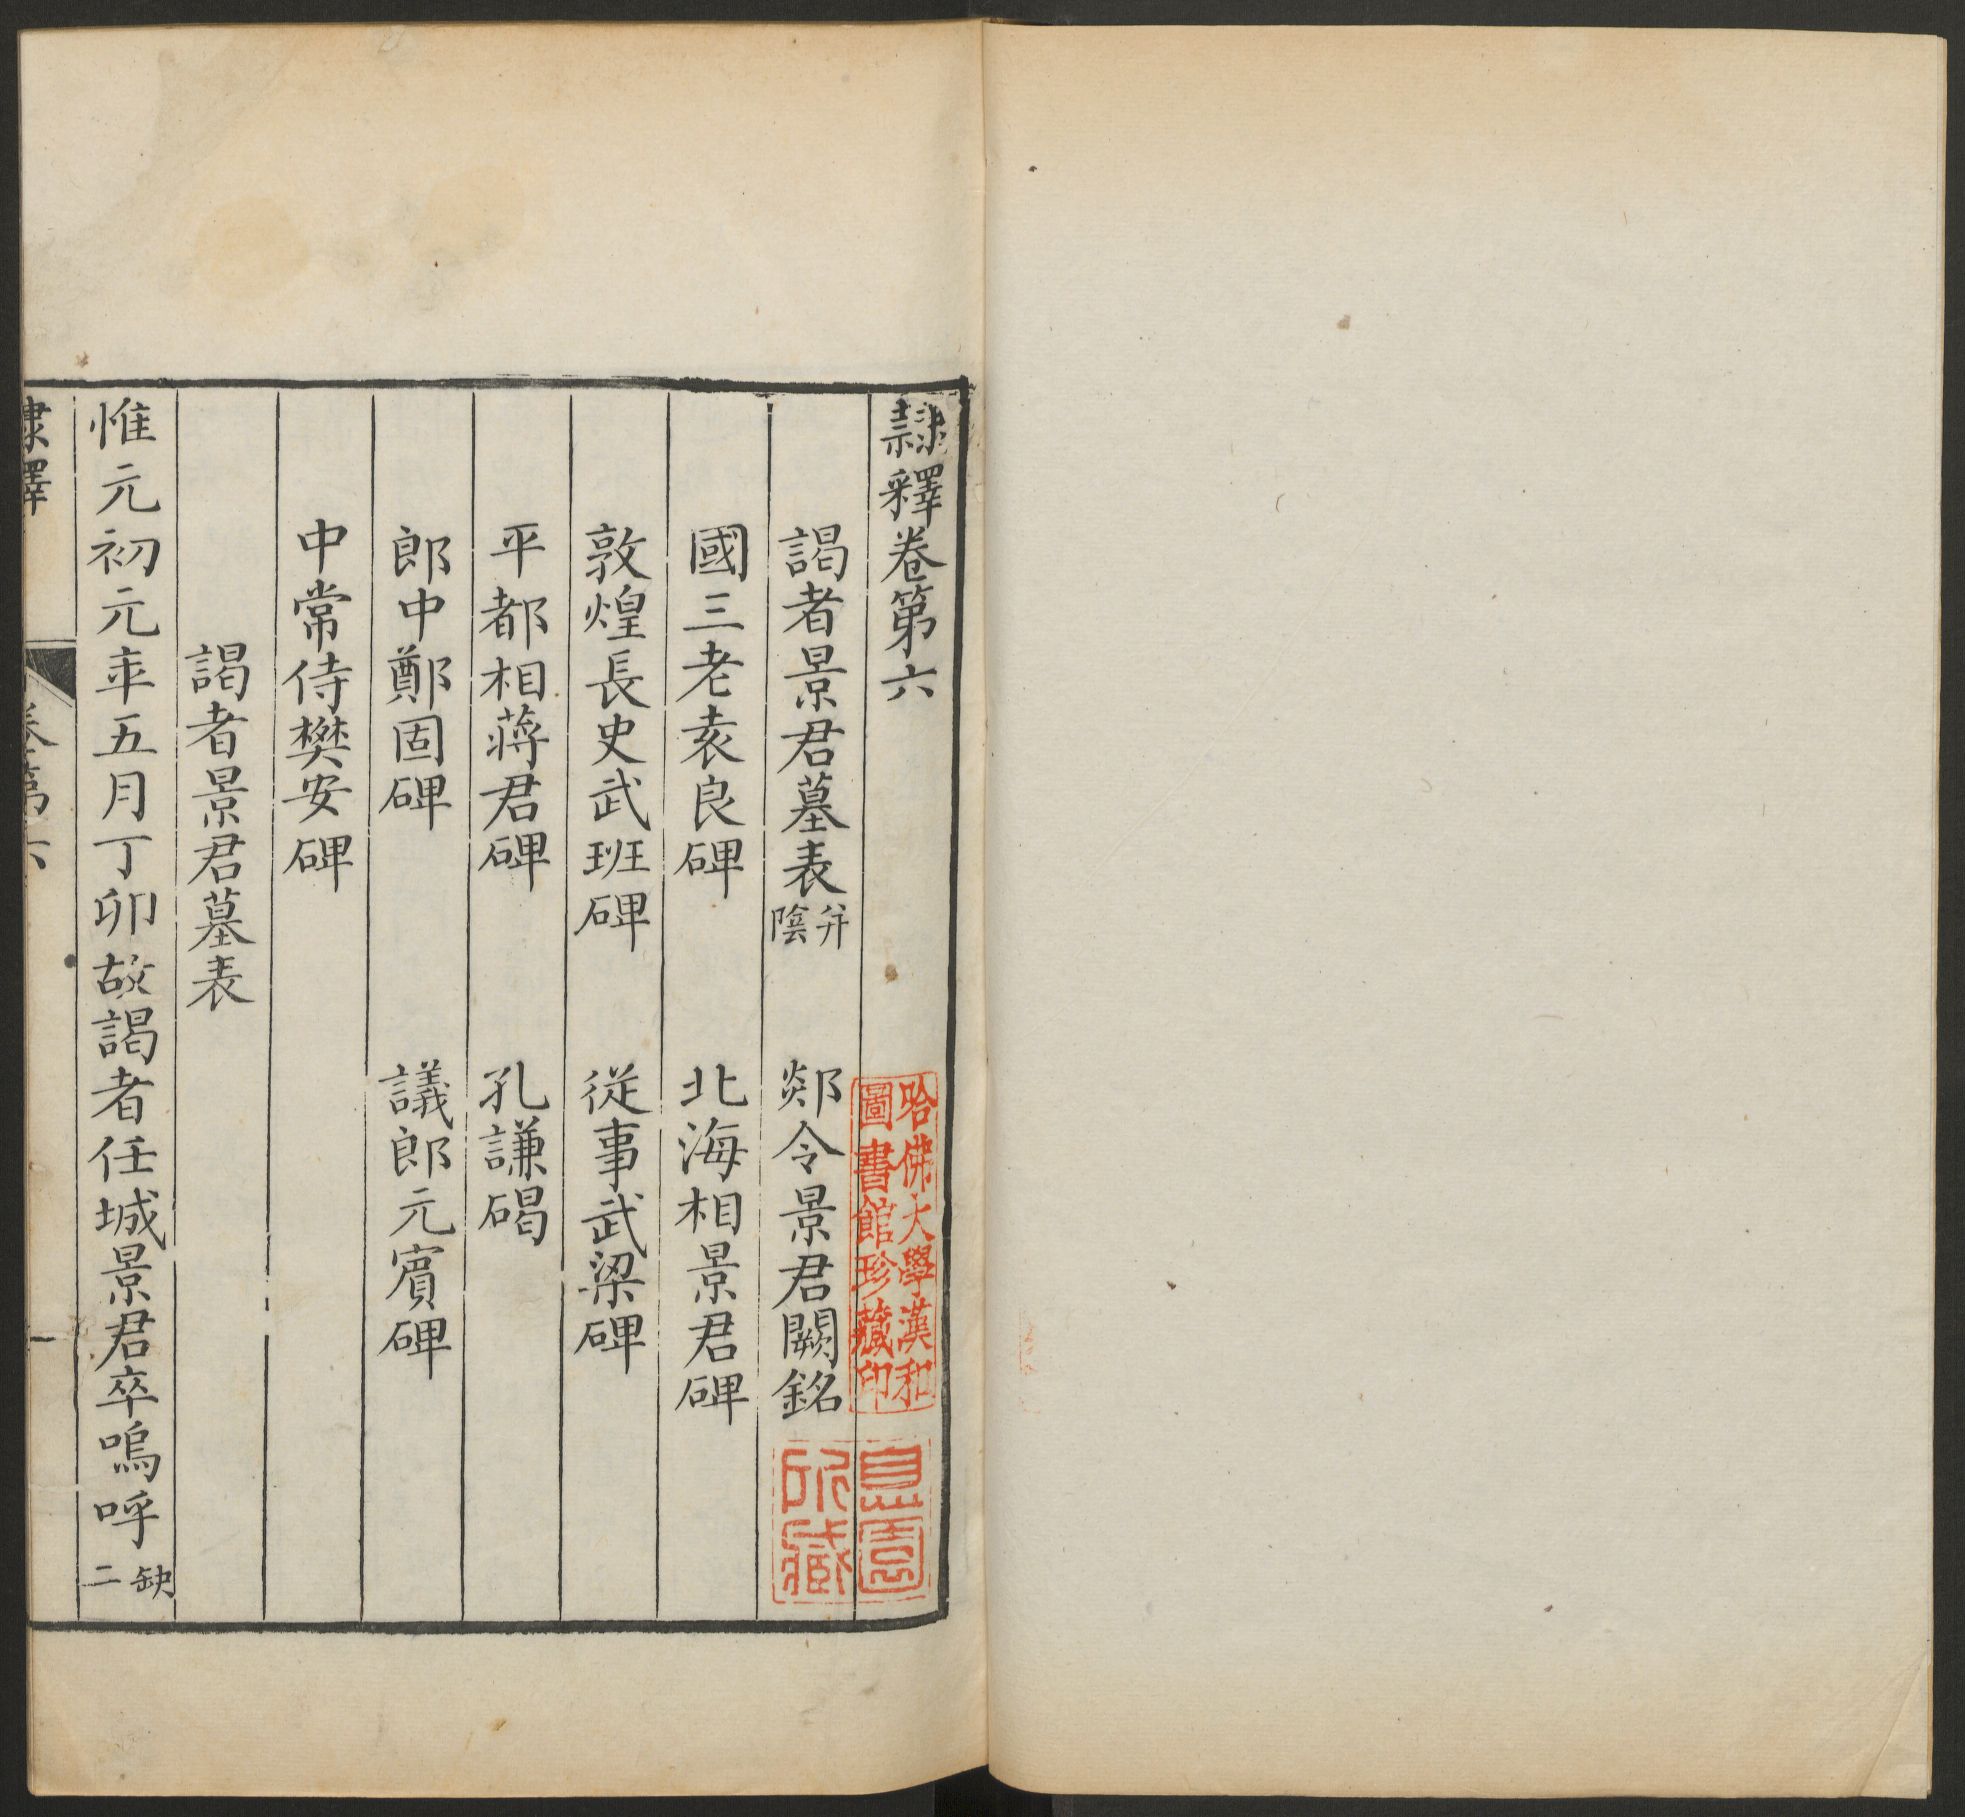 隷釋卷第六
謁者景君墓表并陰 郯令景君闕銘
國三老袁良碑 北海相景君碑
敦煌長史武班碑 從事武梁碑
平都相蔣君碑 孔謙碣
郎中鄭固碑 議郎元賓碑
中常侍樊安碑
謁者景君墓表
惟元初元年五月丁卯故謁者任城景君卒嗚呼缺二
隷釋 卷第六 一
哈佛大學漢和
圖書館珍藏印
所藏